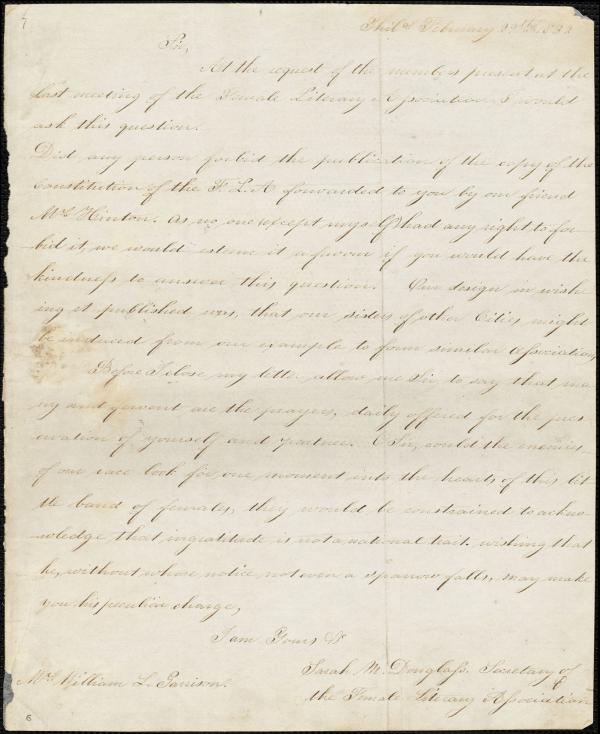 Philad. February 29th 1832
Sir,
At the request of the members present at the
last meeting of the Female Literary Association I would
ask this question.
Did any person forbid the publication of the copy of the
Constitution of the F L A forwarded to you by our friend
Mr. Hinton. As no one (except myself) had any right to for
bid it, we would esteem it a favour if you would have the
kindness to answer this question. Our design in wish
ing it published was, that our sisters of other Cities might
be induced from our example to form similar Associations,
Before I close my letter allow me Sir, to say that ma
ny and fervent are the prayers, daily offered for the pres
ervation of yourself and partner. O Sir, could the enemies
of our race look for one moment into the hearts of this lit
tle band of females, they would be constrained to ackno
wledge that ingratitude is not a national trait. wishing that
he, without whose notice, not even a sparrow falls, may make
you his peculiar charge,
I am Yours &c
Sarah M. Douglass. Secretary of
Mr. William L. Garrison.
the Female Literary Association
6